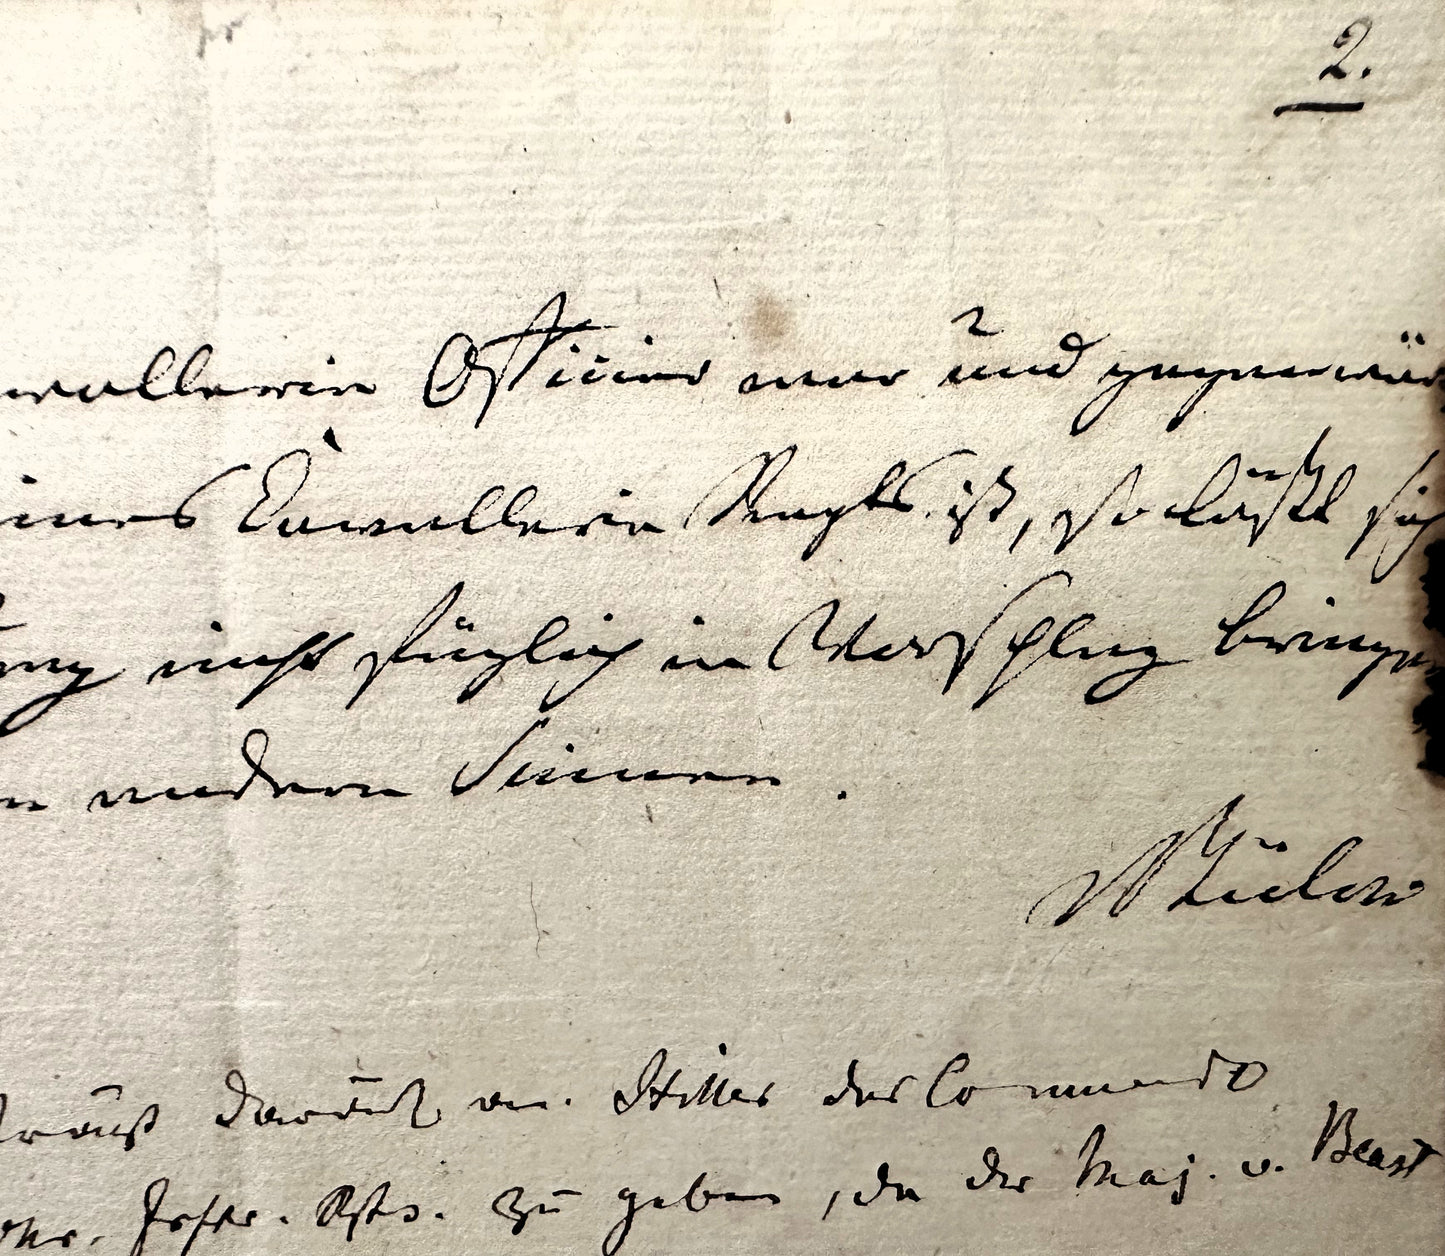 2.
vallerie Officier war und gegenwär
ines Cavallerie Regts ist, so läßt sich
ung nicht füglich in Vorschlag bringen
n andern Sinnen.
Bülow
darauf an. Stiller das Commando
Rgts. zu geben, da der Maj. v. Beast